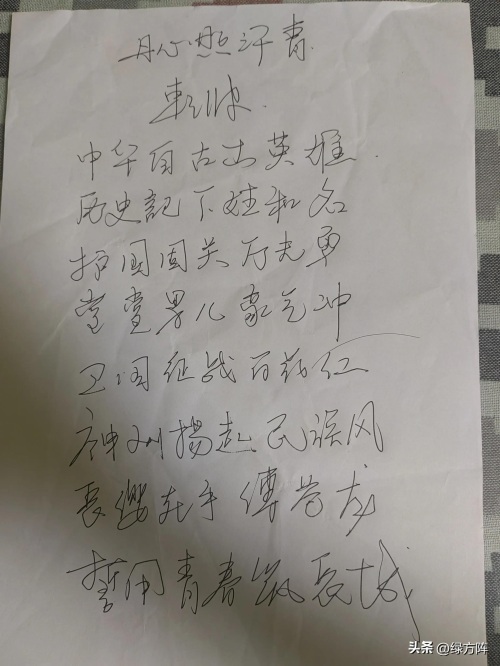 丹心照汗青
中华自古出英雄
历史記下姓和名
护国固关万夫勇
堂堂男儿豪气冲
卫国征战百花红
神州揚起民族风
長缨在手缚苍龙
誓用青春筑長城
头条 @绿方阵